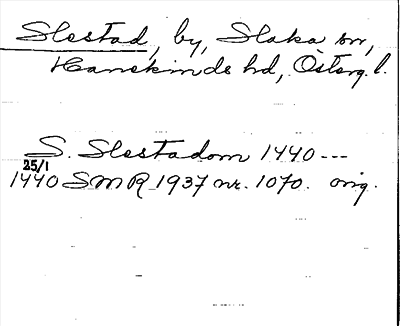 Slestad, by, Slaka sn,
Hanekinds hd, Österg. l.
S. Slestadom 1440 ---
25/1
1440 SMR 1937 nr. 1070. orig.